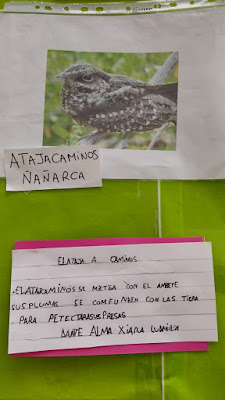 ATAJACAMINOS
ÑAÑARCA
ELATAJA A CAMINOS
.ELATARAMINOS SE METEA CON EL AMBEYE
SUS PLUMAS SE COMFUNDEN CON LAS TIERA
PARA PETECTARASUS PRESAS
DANTE ALMA XIARA